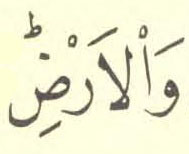 وَاْلاَرْضِؕ